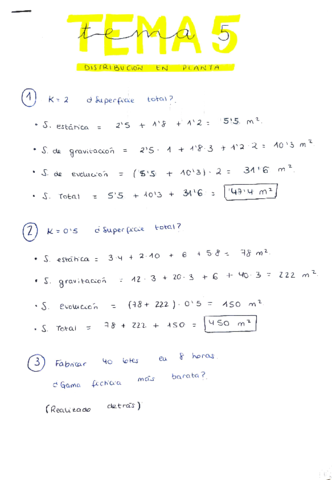 tema 5
TEMA 5
DISTRIBUCIÓN EN PLANTA
1 K = 2 ¿Superficie total?
• S. estática = 2'5 + 1'8 + 1'2 = 5'5 m².
• S. de gravitación = 2'5 · 1 + 1'8 · 3 + 1'2 · 2 = 10'3 m².
• S. de evolución = (5'5 + 10'3) · 2 = 31'6 m².
• S. Total = 5'5 + 10'3 + 31'6 = 47'4 m²
2 K = 0'5 ¿Superficie total?
• S. estática = 3·4 + 2·10 + 6 + 5·8 = 78 m².
• S. gravitación = 12 · 3 + 20 · 3 + 6 + 40 · 3 = 222 m².
• S. Evolución = (78 + 222) · 0'5 = 150 m²
• S. Total = 78 + 222 + 150 = 450 m²
3 Fabricar 40 lotes en 8 horas
¿Gama ficticia más barata?
(Realizado detrás)